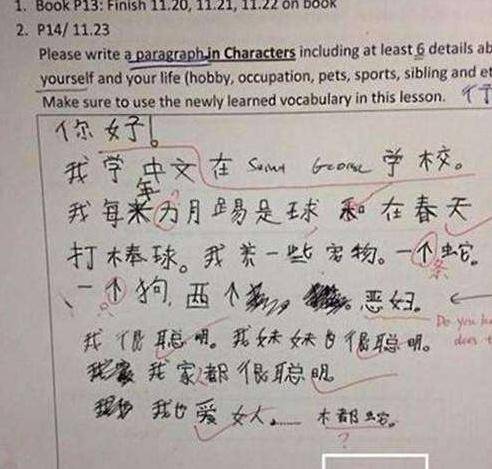 1. Book P13: Finish 11.20, 11.21, 11.22 on book
2. P14/ 11.23
Please write a paragraph in Characters including at least 6 details ab
yourself and your life (hobby, occupation, pets, sports, sibling and et
Make sure to use the newly learned vocabulary in this lesson.
你好!
我学中文在 George 学校。
年
我每 月踢是球和在春天
打棒球。我养一些宠物。一个蛇。
条
一个狗, 西个 恶妇。
Do you ha
does t
我很聪明。我妹妹也很聪明。
我家都很聪明。
我也爱女人…… 木都蛇。
?